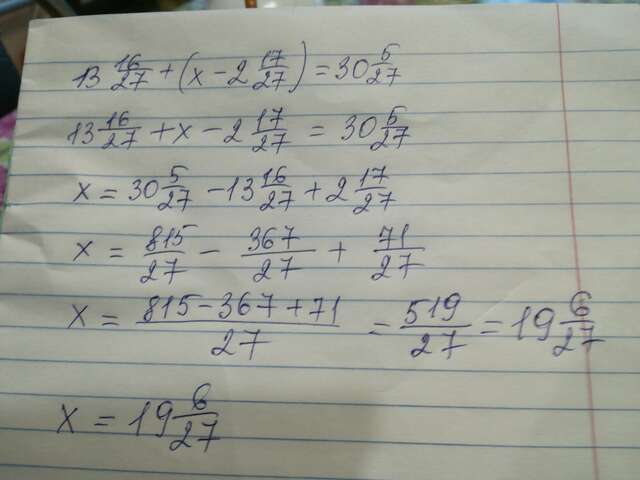 13 16/27 + (x - 2 17/27) = 30 5/27
13 16/27 + x - 2 17/27 = 30 5/27
x = 30 5/27 - 13 16/27 + 2 17/27
x = 815/27 - 367/27 + 71/27
x = (815 - 367 + 71)/27 = 519/27 = 19 6/27
x = 19 6/27